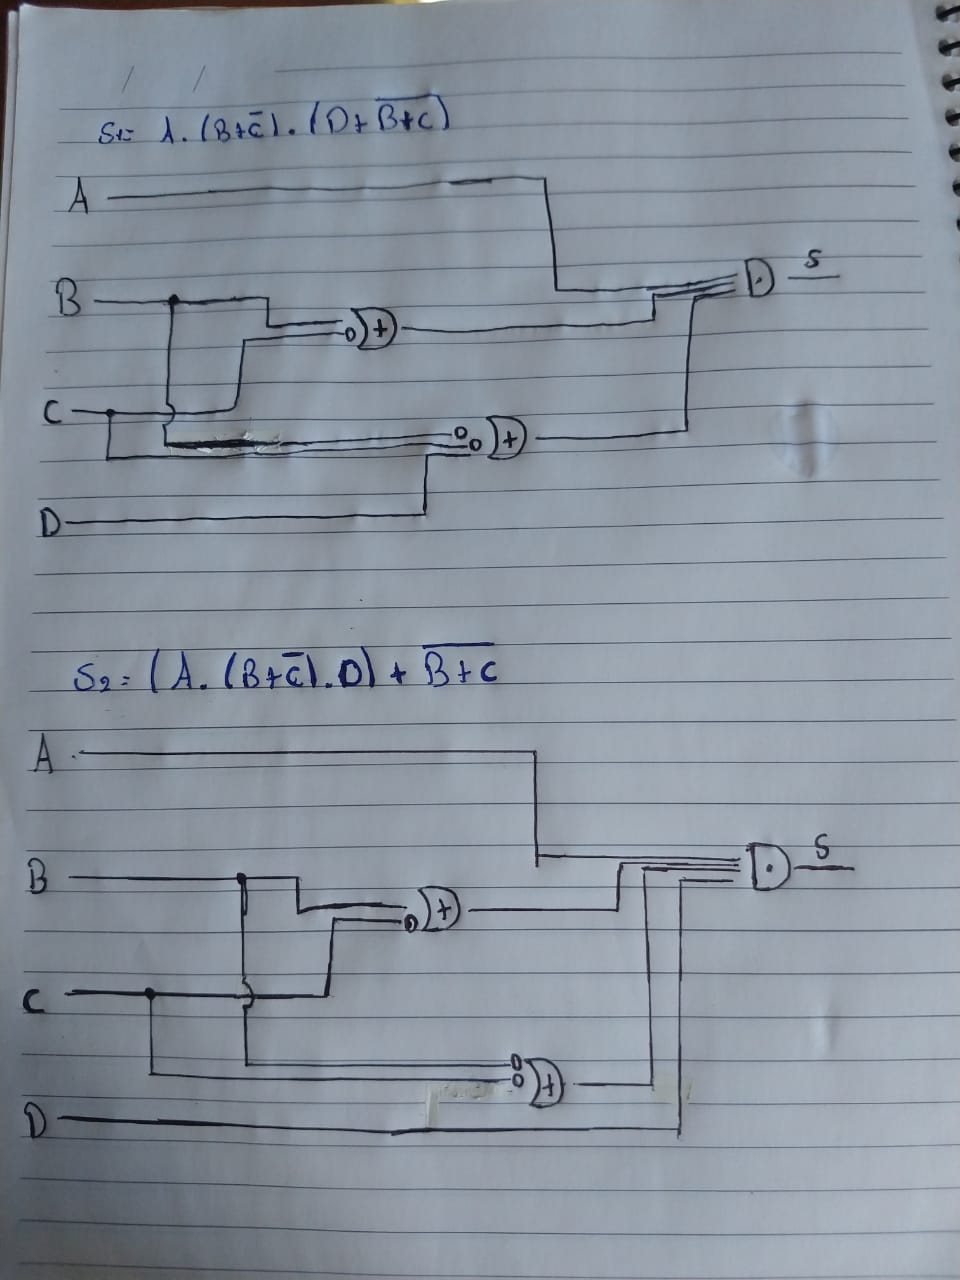 S1= A.(B+C̅).(D+B̅+̅C̅)
A
S
B
+
C
+
D
S2= (A.(B+C̅).D)+B̅+̅C̅
A
S
B
+
C
+
D